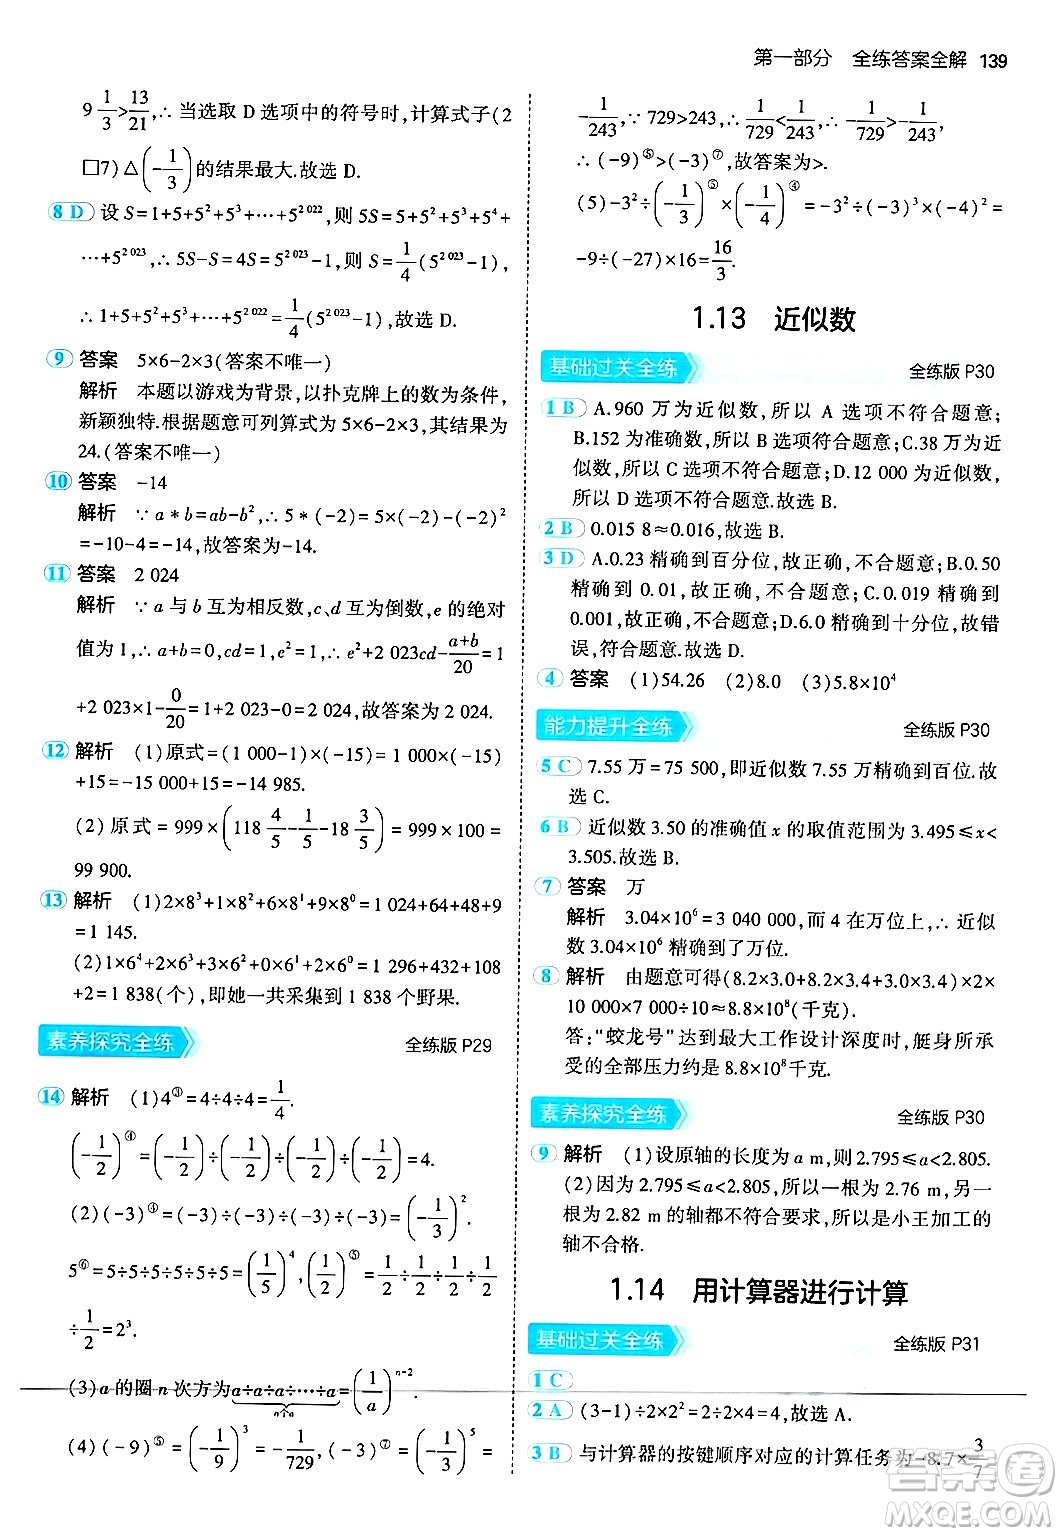 第一部分 全练答案全解 139
9 1/3>13/21,∴当选取 D 选项中的符号时,计算式子(2
□7)△(-1/3)的结果最大.故选 D.
8 D 设 S=1+5+5²+5³+…+5²⁰²²,则 5S=5+5²+5³+5⁴+
…+5²⁰²³,∴5S-S=4S=5²⁰²³-1,则 S=1/4(5²⁰²³-1),
∴1+5+5²+5³+…+5²⁰²²=1/4(5²⁰²³-1),故选 D.
9 答案 5×6-2×3(答案不唯一)
解析 本题以游戏为背景,以扑克牌上的数为条件,
新颖独特.根据题意可列算式为 5×6-2×3,其结果为
24.(答案不唯一)
10 答案 -14
解析 ∵a*b=ab-b²,∴5*(-2)=5×(-2)-(-2)²
=-10-4=-14,故答案为-14.
11 答案 2 024
解析 ∵a 与 b 互为相反数,c、d 互为倒数,e 的绝对
值为 1,∴a+b=0,cd=1,e²=1,∴e²+2 023cd-(a+b)/20=1
+2 023×1-0/20=1+2 023-0=2 024,故答案为 2 024.
12 解析 (1)原式=(1 000-1)×(-15)=1 000×(-15)
+15=-15 000+15=-14 985.
(2)原式=999×(118 4/5-1/5-18 3/5)=999×100=
99 900.
13 解析 (1)2×8³+1×8²+6×8¹+9×8⁰=1 024+64+48+9
=1 145.
(2)1×6⁴+2×6³+3×6²+0×6¹+2×6⁰=1 296+432+108
+2=1 838(个),即她一共采集到 1 838 个野果.
素养探究全练 全练版 P29
14 解析 (1)4^③=4÷4÷4=1/4.
(-1/2)^④=(-1/2)÷(-1/2)÷(-1/2)÷(-1/2)=4.
(2)(-3)^④=(-3)÷(-3)÷(-3)÷(-3)=(-1/3)².
5^⑥=5÷5÷5÷5÷5÷5=(1/5)⁴,(1/2)^⑤=1/2÷1/2÷1/2÷1/2
÷1/2=2³.
(3)a 的圈 n 次方为a÷a÷a÷…÷a=(1/a)ⁿ⁻².
n个a
(4)(-9)^⑤=(-1/9)³=-1/729,(-3)^⑦=(-1/3)⁵=
-1/243,∵729>243,∴1/729<1/243,∴-1/729>-1/243,
∴(-9)^⑤>(-3)^⑦,故答案为>.
(5)-3²÷(-1/3)^⑤×(-1/4)^④=-3²÷(-3)³×(-4)²=
-9÷(-27)×16=16/3.
1.13 近似数
基础过关全练 全练版 P30
1 B A.960 万为近似数,所以 A 选项不符合题意;
B.152 为准确数,所以 B 选项符合题意;C.38 万为近
似数,所以 C 选项不符合题意;D.12 000 为近似数,
所以 D 选项不符合题意.故选 B.
2 B 0.015 8≈0.016,故选 B.
3 D A.0.23 精确到百分位,故正确,不合题意;B.0.50
精确到 0.01,故正确,不合题意;C.0.019 精确到
0.001,故正确,不合题意;D.6.0 精确到十分位,故错
误,符合题意.故选 D.
4 答案 (1)54.26 (2)8.0 (3)5.8×10⁴
能力提升全练 全练版 P30
5 C 7.55 万=75 500,即近似数 7.55 万精确到百位.故
选 C.
6 B 近似数 3.50 的准确值 x 的取值范围为 3.495≤x<
3.505.故选 B.
7 答案 万
解析 3.04×10⁶=3 040 000,而 4 在万位上,∴近似
数 3.04×10⁶ 精确到了万位.
8 解析 由题意可得(8.2×3.0+8.2×3.4+3.0×3.4)×2×
10 000×7 000÷10≈8.8×10⁸(千克).
答:“蛟龙号”达到最大工作设计深度时,艇身所承
受的全部压力约为 8.8×10⁸千克.
素养探究全练 全练版 P30
9 解析 (1)设原轴的长度为 a m,则 2.795≤a<2.805.
(2)因为 2.795≤a<2.805,所以一根为 2.76 m,另一
根为 2.82 m 的轴都不符合要求,所以是小王加工的
轴不合格.
1.14 用计算器进行计算
基础过关全练 全练版 P31
1 C
2 A (3-1)÷2×2²=2÷2×4=4,故选 A.
3 B 与计算器的按键顺序对应的计算任务为-8.7×3/7
答案圈
MXQE.COM